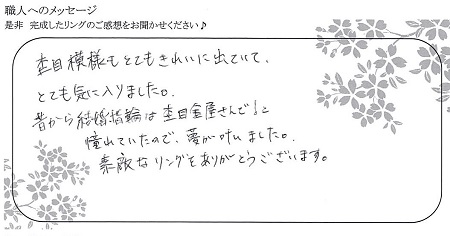 職人へのメッセージ
是非 完成したリングのご感想をお聞かせください♪
杢目模様もとてもきれいに出ていて、
とても気に入りました。
昔から結婚指輪は杢目金屋さんで!と
憧れていたので、夢が叶いました。
素敵なリングをありがとうございます。